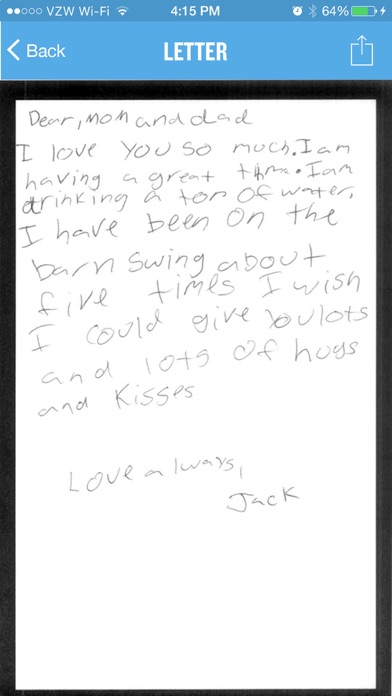 VZW Wi-Fi 4:15 PM 64%
Back LETTER
Dear, Mom and dad
I love you so much. I am
having a great time. I am
drinking a ton of water,
I have been on the
barn swing about
five times I wish
I could give you lots
and lots of hugs
and kisses
Love always,
Jack